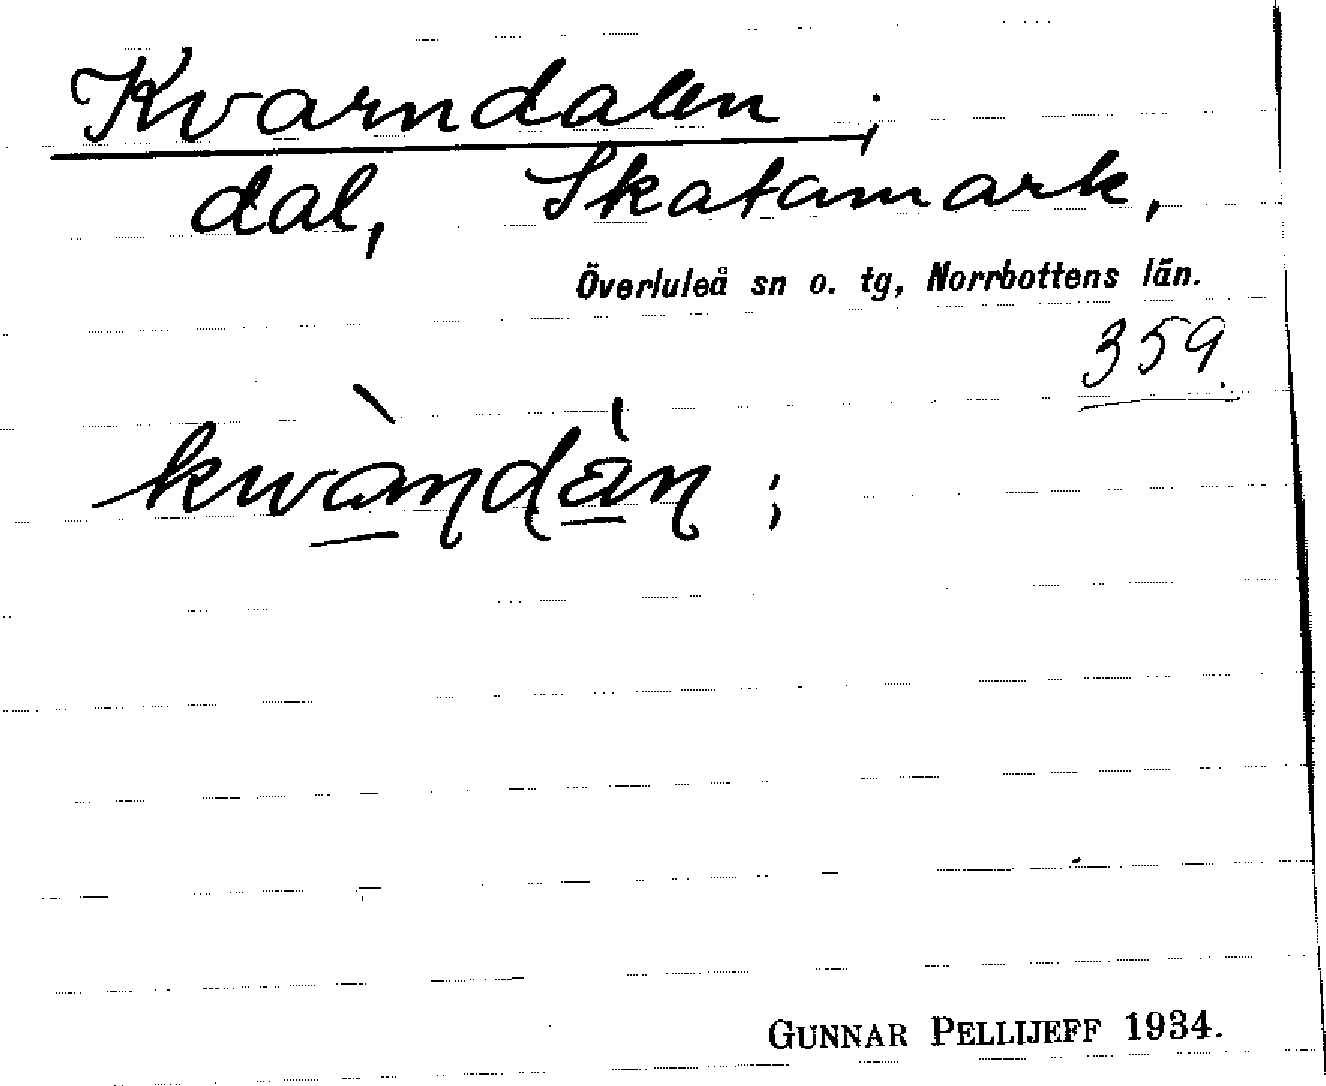 Kvarndalen;
dal, Skatamark,
Överluleå sn o. tg, Norrbottens län.
359.
kwàṇdàṇ;
GUNNAR PELLIJEFF 1934.